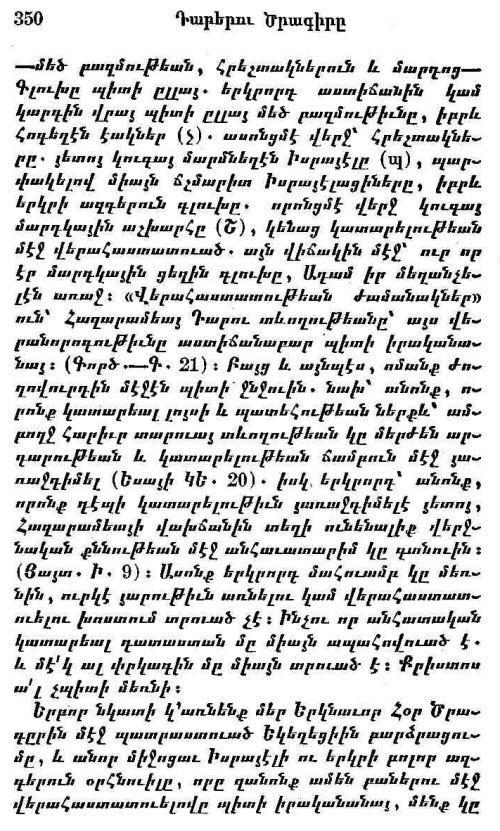 350 Դարերու Ծրագիրը
—մեծ բազմութեան, Հրեշտակներուն և մարդոց—
Գլուխը պիտի ըլլայ. երկրորդ աստիճանին կամ
կարգին վրայ պիտի ըլլայ մեծ բազմութիւնը, իբրև
Հոգեղէն էակներ (չ). ասոնցմէ վերջ՝ Հրեշտակնե-
րը. յետոյ կուգայ մարմնեղէն Իսրայէլը (պ), պար-
փակելով միայն ճշմարիտ Իսրայէլացիները, իբրև
երկրի ազգերուն գլուխը. որոնցմէ վերջ կուգայ
մարդկային աշխարհը (Ծ), կենաց կատարելութեան
մէջ վերահաստատուած. այն վիճակին մէջ՝ ուր որ
էր մարդկային ցեղին գլուխը, Ադամ իր մեղանչե-
լէն առաջ։ «Վերահաստատութեան Ժամանակներ»
ուն՝ Հազարամեայ Դարու տևողութեանը՝ այս վե-
րանորոգութիւնը աստիճանաբար պիտի իրականա-
նայ։ (Գործ.—Գ. 21)։ Բայց և այնպէս, ոմանք ժո-
ղովուրդին մէջէն պիտի ջնջուին. նախ՝ անոնք, ո-
րոնք կատարեալ լոյսի և պատեհութեան ներքև՝ ամ-
բողջ հարիւր տարուայ տևողութեան կը մերժեն ար-
դարութեան և կատարելութեան ճամբուն մէջ յա-
ռաջդիմել (Եսայի ԿԵ. 20). իսկ երկրորդ՝ անոնք,
որոնք դէպի կատարելութիւն յառաջդիմելէ յետոյ,
Հազարամեայի վախճանին տեղի ունենալիք վերջ-
նական քննութեան մէջ անհաւատարիմ կը գտնուին։
(Յայտ. Ի. 9)։ Ասոնք երկրորդ մահուամբ կը մեռ-
նին, ուրկէ յարութիւն առնելու կամ վերահաստատ-
ուելու խոստում տրուած չէ։ Ինչու որ անհատական
կատարեալ դատաստան մը միայն ապահովուած է.
և մէ՛կ ալ փրկագին մը միայն տրուած է։ Քրիստոս
ա՛լ չպիտի մեռնի։
Երբոր նկատի կ՚առնենք մեր Երկնաւոր Հօր Ծրա-
գըրին մէջ պատրաստուած Եկեղեցիին բարձրացու-
մը, և անոր միջոցաւ Իսրայէլի ու երկրի բոլոր ազ-
գերուն օրհնուիլը, որը զանոնք ամեն բաներու մէջ
վերահաստատուելովը պիտի իրականանայ, մենք կը